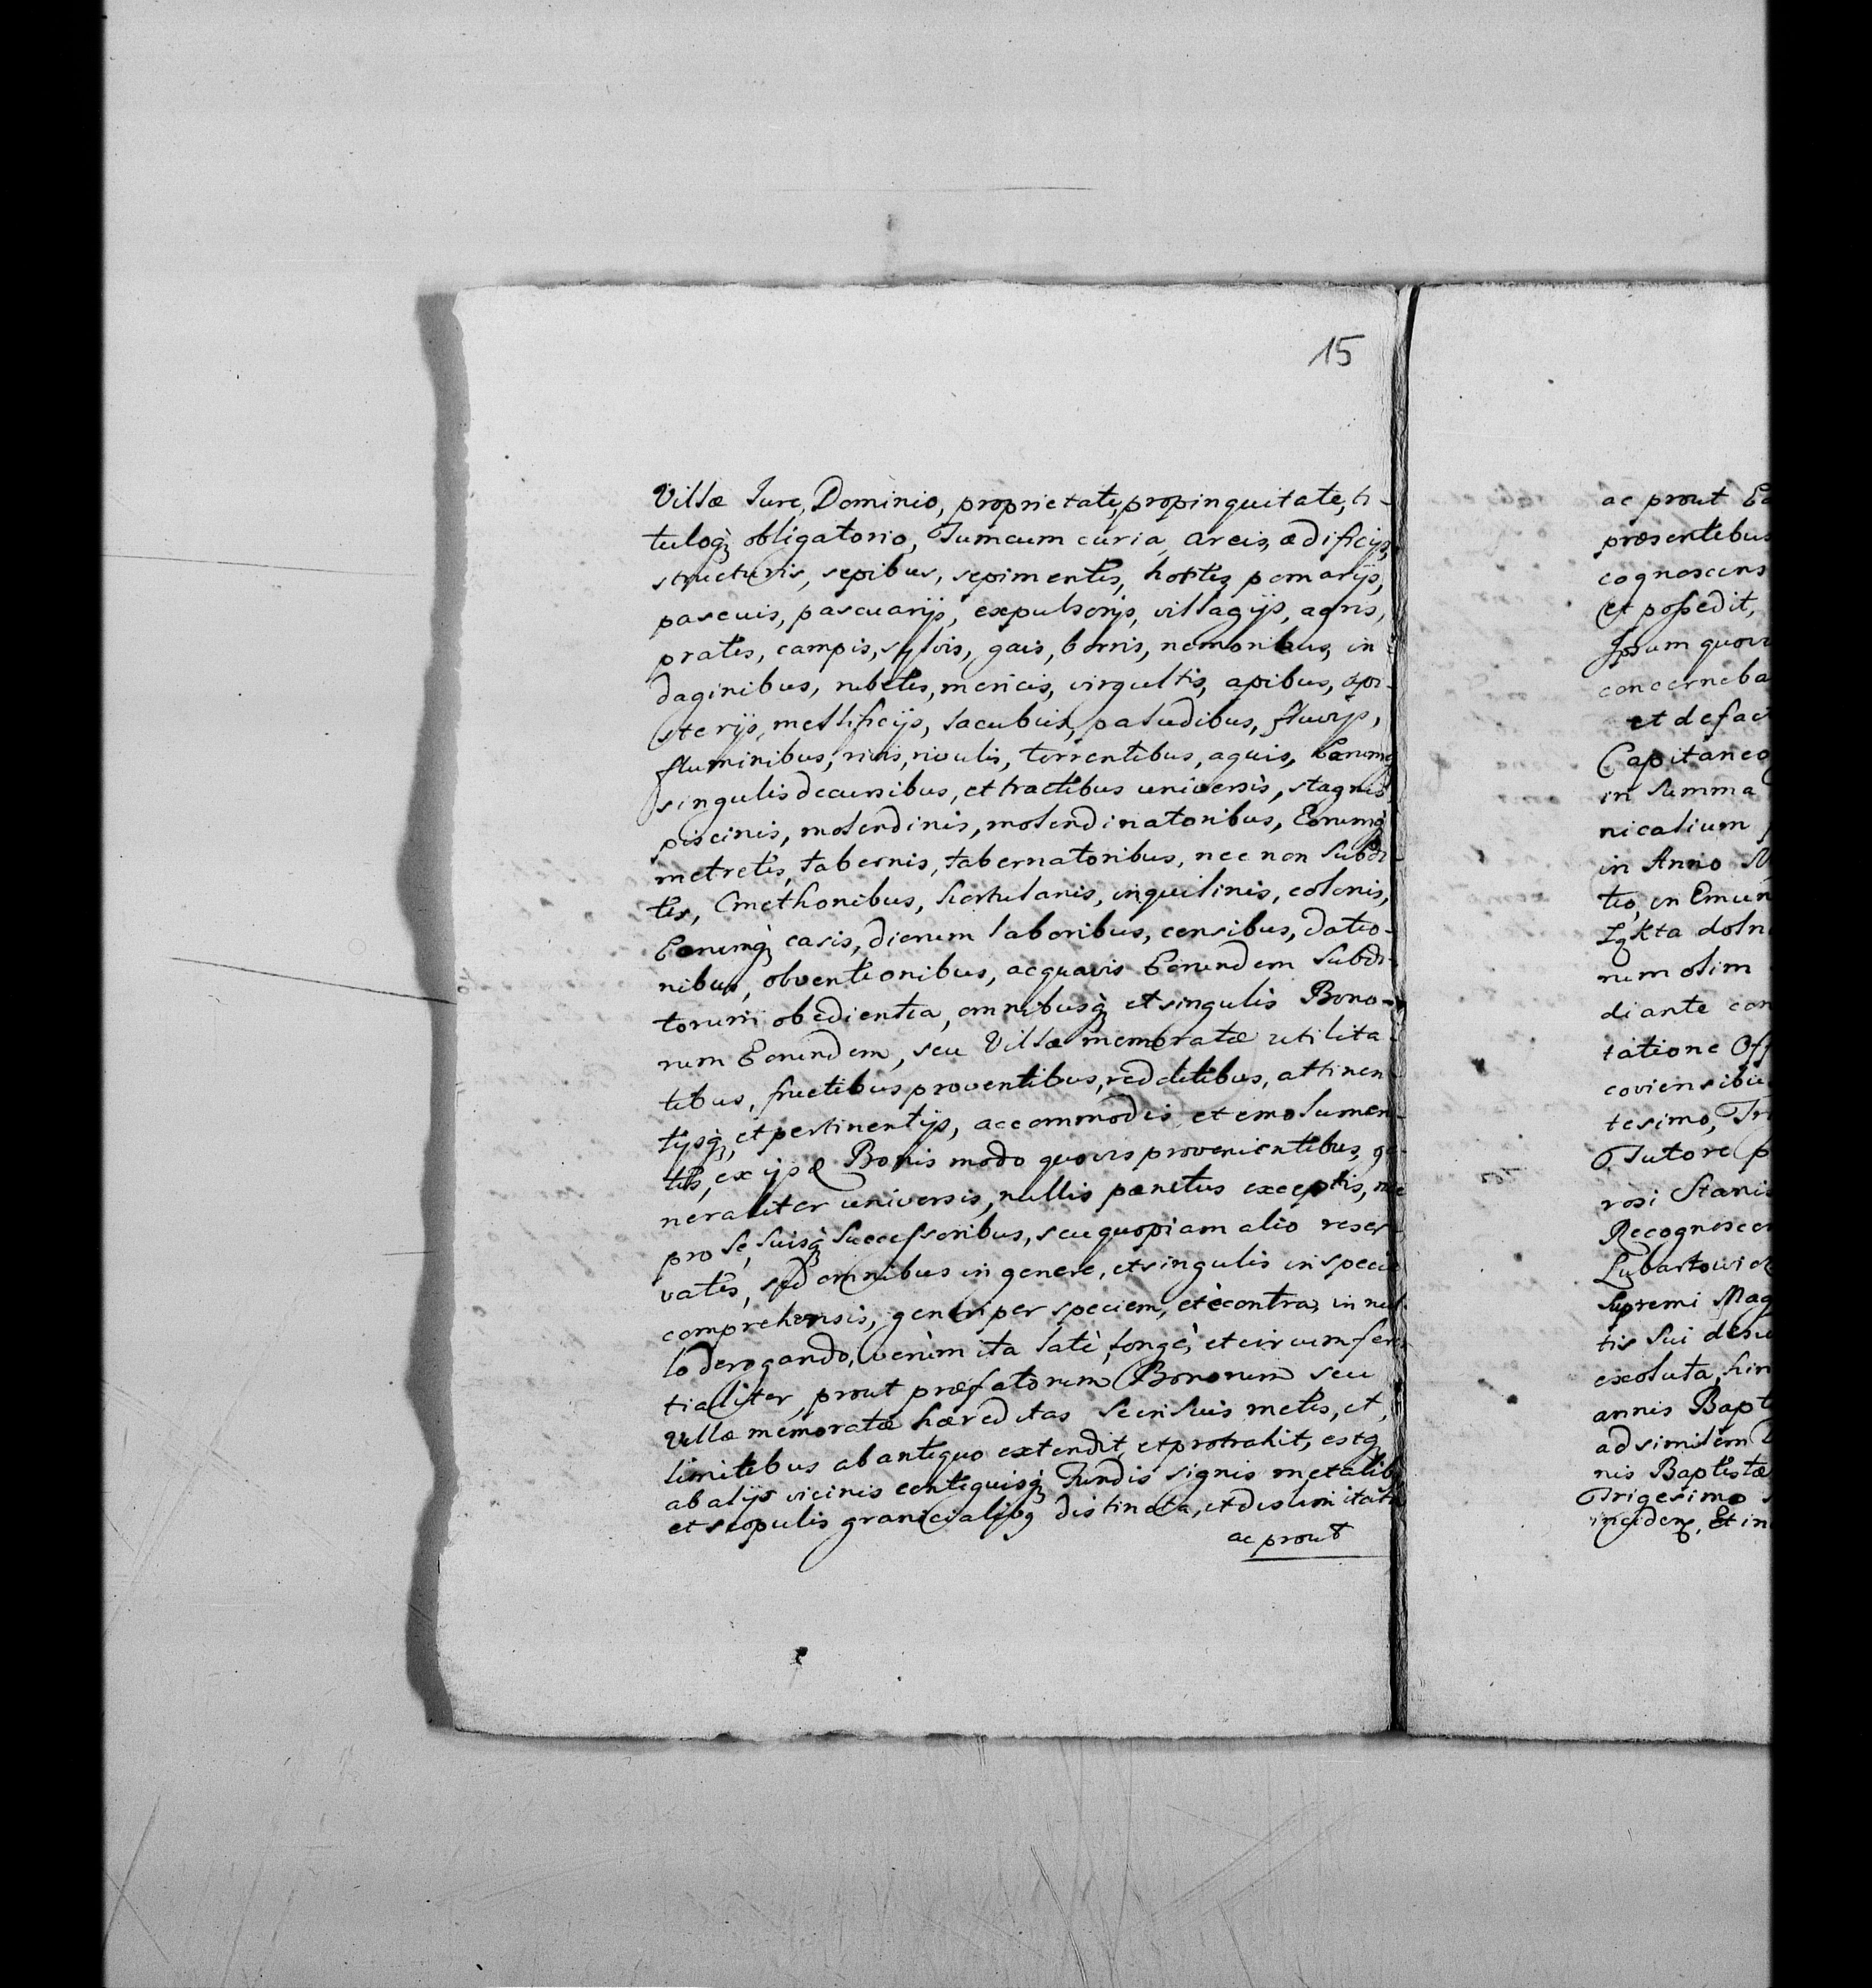 15
Villæ Jure, Dominio, proprietate, propinquitate, ti-
tuloq; obligatorio, Tum cum curia, areis, ædificijs,
structuris, sepibus, sepimentis, hortis, pomarijs,
pascuis, pascuarijs, expulsorijs, villagijs, agris,
pratis, campis, sylvis, gais, borris, nemoribus, in-
daginibus, rubetis, mericis, virgultis, apibus, api-
sterijs, mellificijs, lacubus, paludibus, fluvijs,
fluminibus, rivis, rivulis, torrentibus, aquis, Earumq;
singulis decursibus, et tractibus universis, stagnis
piscinis, molendinis, molendinatoribus, Eorumq;
metretis, tabernis, tabernatoribus, nec non Subdi-
tis, Cmethonibus, hortulanis, inquilinis, colonis,
Eorumq; casis, dierum laboribus, censibus, datio-
nibus, obventionibus, ac quavis Eorundem Subdi-
torum obedientia, omnibusq; et singulis Bono-
rum Eorundem, seu Villæ memoratæ utilita-
tibus, fructibus proventibus, redditibus, attinen-
tijsq; et pertinentijs, accommodis et emolumen-
tis, ex ijsd Bonis modo quovis provenientibus, ge-
neraliter universis, nullis penitus exceptis, nec
pro se, suisq; Successoribus, seu quopiam alio reser-
vatis, sed omnibus in genere, et singulis in specie
comprehensis, generi per speciem, et è contra, in nul-
lo derogando, verùm ita latè, longè, et circumferen-
tialiter, prout præfatorum Bonorum seu
Villæ memoratæ hæreditas se in suis metis, et
limitibus ab antiquo extendit, et protrahit, estq;
ab alijs vicinis contiguisq; Fundis signis metalib;
et scopulis granicialibq; distincta, et deslimitata
ac prout
ac prout
præsentibus
cognoscens
et possedit,
Ipsum quov
concerneba
et defac
Capitaneo
in Summa
nicalium
in Anno
tio, in
Zgłta doln
rum olim
diante con
tatione Off
coviensibu
tesimo, Tri
Tutore p
rosi Stanis
Recognoscen
Lubartowicz
Supremi Mag
tis sui desu
exoluta, hin
annis Bapt
ad similem
nis Baptistæ
Trigesimo
inciden, Et in